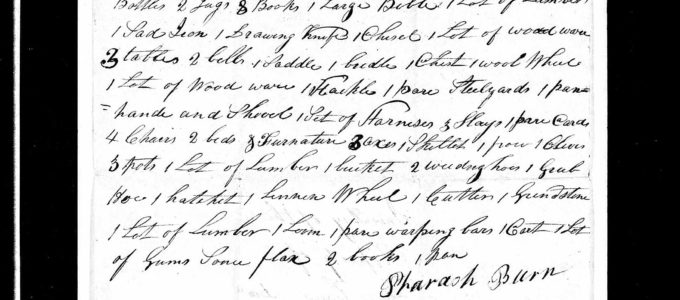 Bottles 2 Jugs 8 Books 1 Large Bible 1 Lot of Lumber
1 Sad Iron 1 Drawing Knife 1 Chisel 1 Lot of wood ware
3 tables 2 bells 1 Saddle 1 bridle 1 Chest 1 wool Wheel
1 Lot of Wood ware 1 Hackle 1 pare Steelyards 1 pan
hande and Shovel 1 Set of Harneses & Slays 1 pare Cards
4 Chairs 2 beds & Furnature 3 axes 1 Skillet 1 pow 1 Clevis
3 pots 1 Lot of Lumber 1 bucket 2 weeding hoes 1 Grub
Hoe 1 hatchet 1 Linnen Wheel 1 Cutter 1 Grindstone
1 Lot of Lumber 1 Loom 1 pare warping bars 1 Cart 1 Lot
of Gums Some flax 2 books 1 pan
Pharaoh Burn